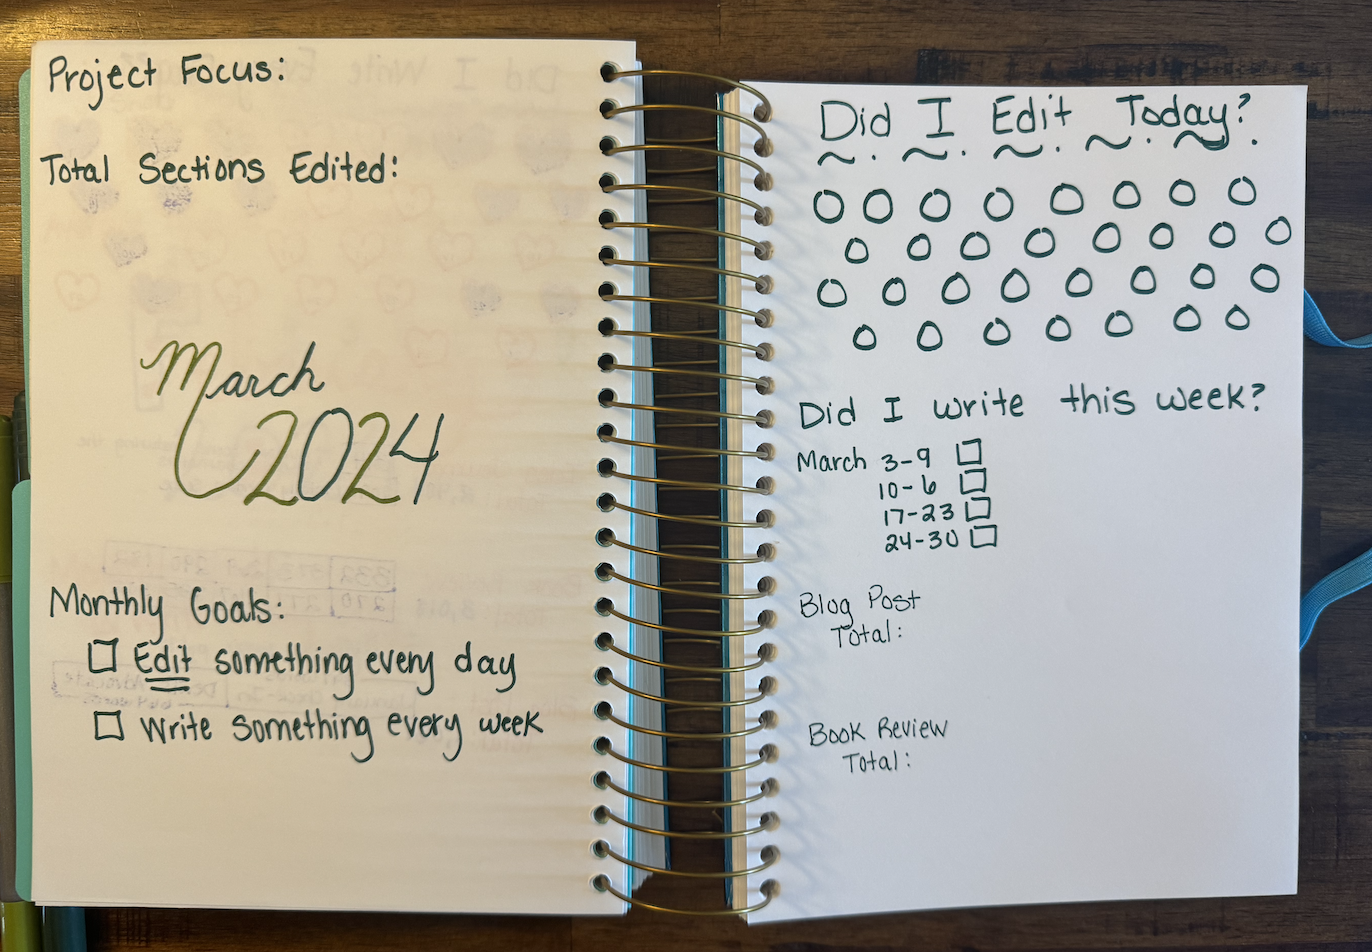 Project Focus:
Total Sections Edited:
March
2024
Monthly Goals:
Edit something every day
Write something every week
Did I Edit Today?
Did I write this week?
March 3-9
10-6
17-23
24-30
Blog Post
Total:
Book Review
Total: